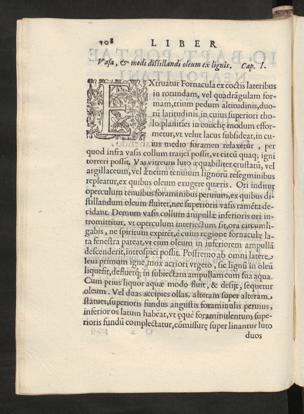 108 LIBER
Vasa, & modi distillandi oleum ex lignis. Cap. I.
EXtruatur Fornacula ex coctis lateribus
in rotundam, vel quadrāgulam for-
mam, trium pedum altitudinis, duo-
rū latitudinis, in cuius superiori tho-
lo planities in conchę modum effor-
metur, vt velut lacus subsideat, in cu-
ius medio foramen relaxetur, per
quod infra vasis collum traijci possit, vt circū quaq; igni
torreri possit. Vas vitreum luto
argillaceum, vel æneum tenuium lignorū resegminibus
repleatur, ex quibus oleum exugere quæris. Ori inditur
operculum tenuibus foraminibus peruium, ex quibus di-
stillandum oleum fluitet, nec superioris vasis ramēta de-
cidant. Demum vasis collum ampullæ inferioris ori in-
tromittitur, vt operculum intersectum sit, ora circumli-
gabis, ne spiritum expiret, è cuius regione fornaculæ la-
ta fenestra pateat, vt cum oleum in inferiorem ampullā
descenderit, introspici possit. Postremo ab omni latere,
leui primum igne, mox acriori vrgeto, sic lignū in oleū
liquescit, defluetq; in subiectam ampullam cum sua aqua.
Cum prius liquor aquæ modo fluit, & desijt, sequetur
oleum. Vel duas accipies ollas, alteram super alteram,
statues, superioris fundus angustis foraminulis pernius,
inferior os latum habeat, vt eque foraminulentum supe-
rioris fundū complectatur, cōmissurę super linantur luto
duos